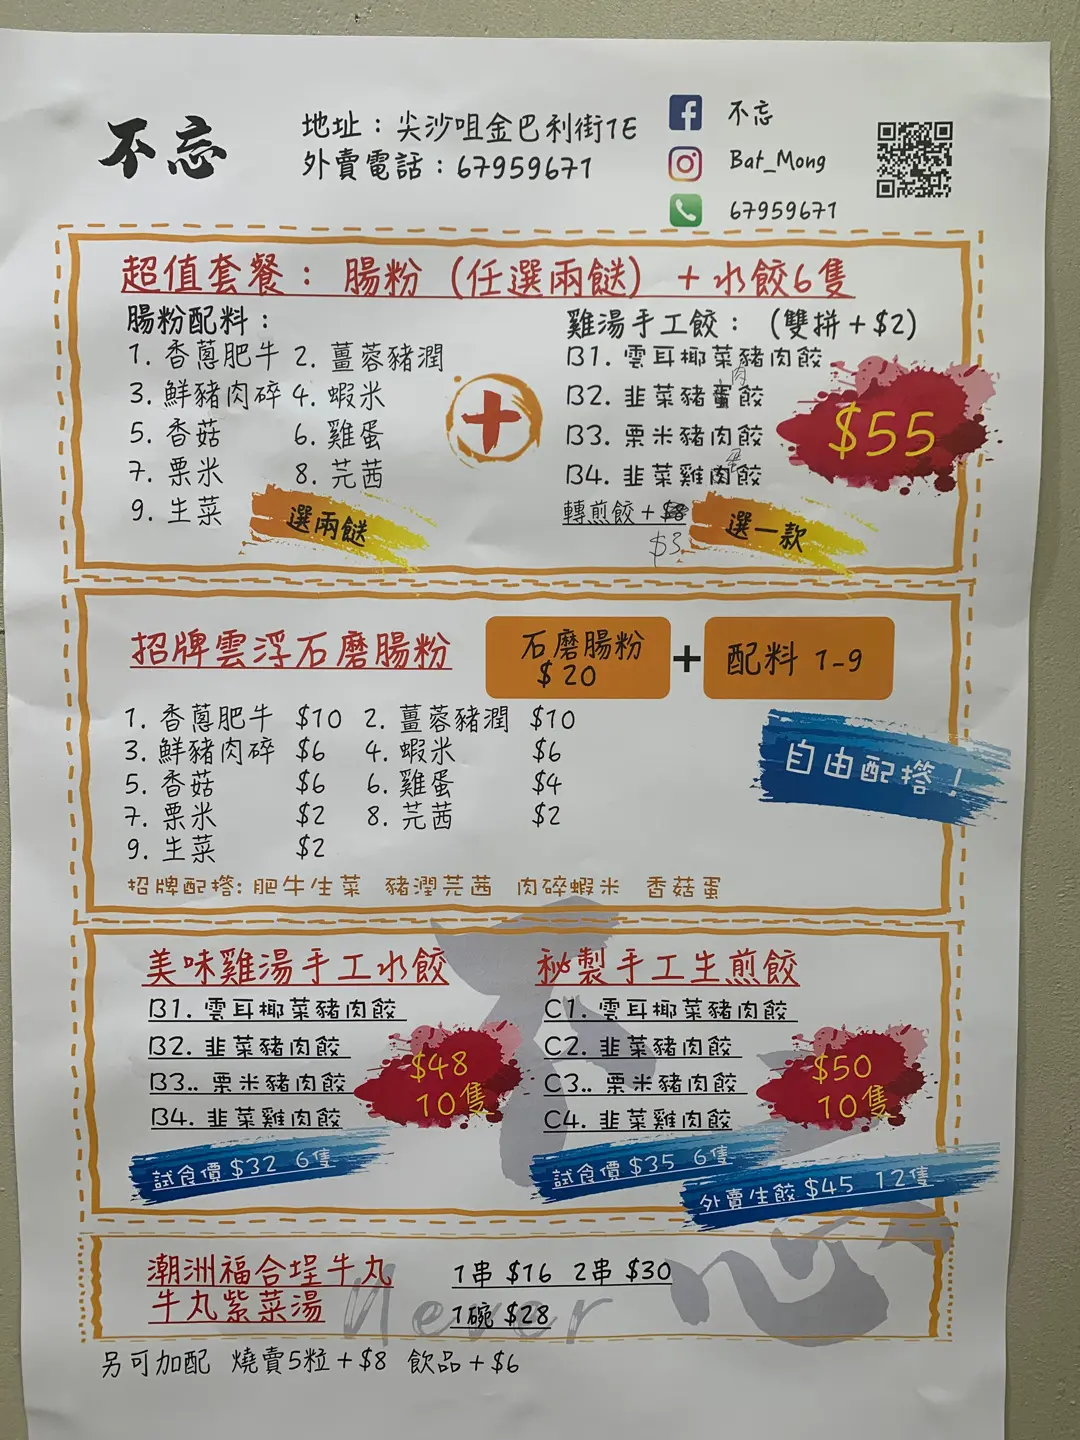 不忘
地址：尖沙咀金巴利街1E
外賣電話：67959671
不忘
Bat_Mong
67959671
超值套餐：腸粉（任選兩餸）＋水餃6隻
腸粉配料：
1. 香蔥肥牛 2. 薑蓉豬潤
3. 鮮豬肉碎 4. 蝦米
5. 香菇 6. 雞蛋
7. 粟米 8. 芫茜
9. 生菜
選兩餸
+
雞湯手工餃：（雙拼＋$2）
B1. 雲耳椰菜豬肉餃
B2. 韭菜豬蛋餃
肉
B3. 粟米豬肉餃
B4. 韭菜雞肉餃
蛋
轉煎餃＋$8
$3
選一款
$55
招牌雲浮石磨腸粉
石磨腸粉
$20
+
配料 1-9
1. 香蔥肥牛 $10 2. 薑蓉豬潤 $10
3. 鮮豬肉碎 $6 4. 蝦米 $6
5. 香菇 $6 6. 雞蛋 $4
7. 粟米 $2 8. 芫茜 $2
9. 生菜 $2
自由配撘！
招牌配撘: 肥牛生菜 豬潤芫茜 肉碎蝦米 香菇蛋
美味雞湯手工水餃
B1. 雲耳椰菜豬肉餃
B2. 韭菜豬肉餃
B3.. 粟米豬肉餃
B4. 韭菜雞肉餃
$48
10隻
試食價 $32 6隻
秘製手工生煎餃
C1. 雲耳椰菜豬肉餃
C2. 韭菜豬肉餃
C3.. 粟米豬肉餃
C4. 韭菜雞肉餃
$50
10隻
試食價 $35 6隻
外賣生餃 $45 12隻
潮洲福合埕牛丸 1串 $16 2串 $30
牛丸紫菜湯 1碗 $28
不忘
Never
另可加配 燒賣5粒＋$8 飲品＋$6